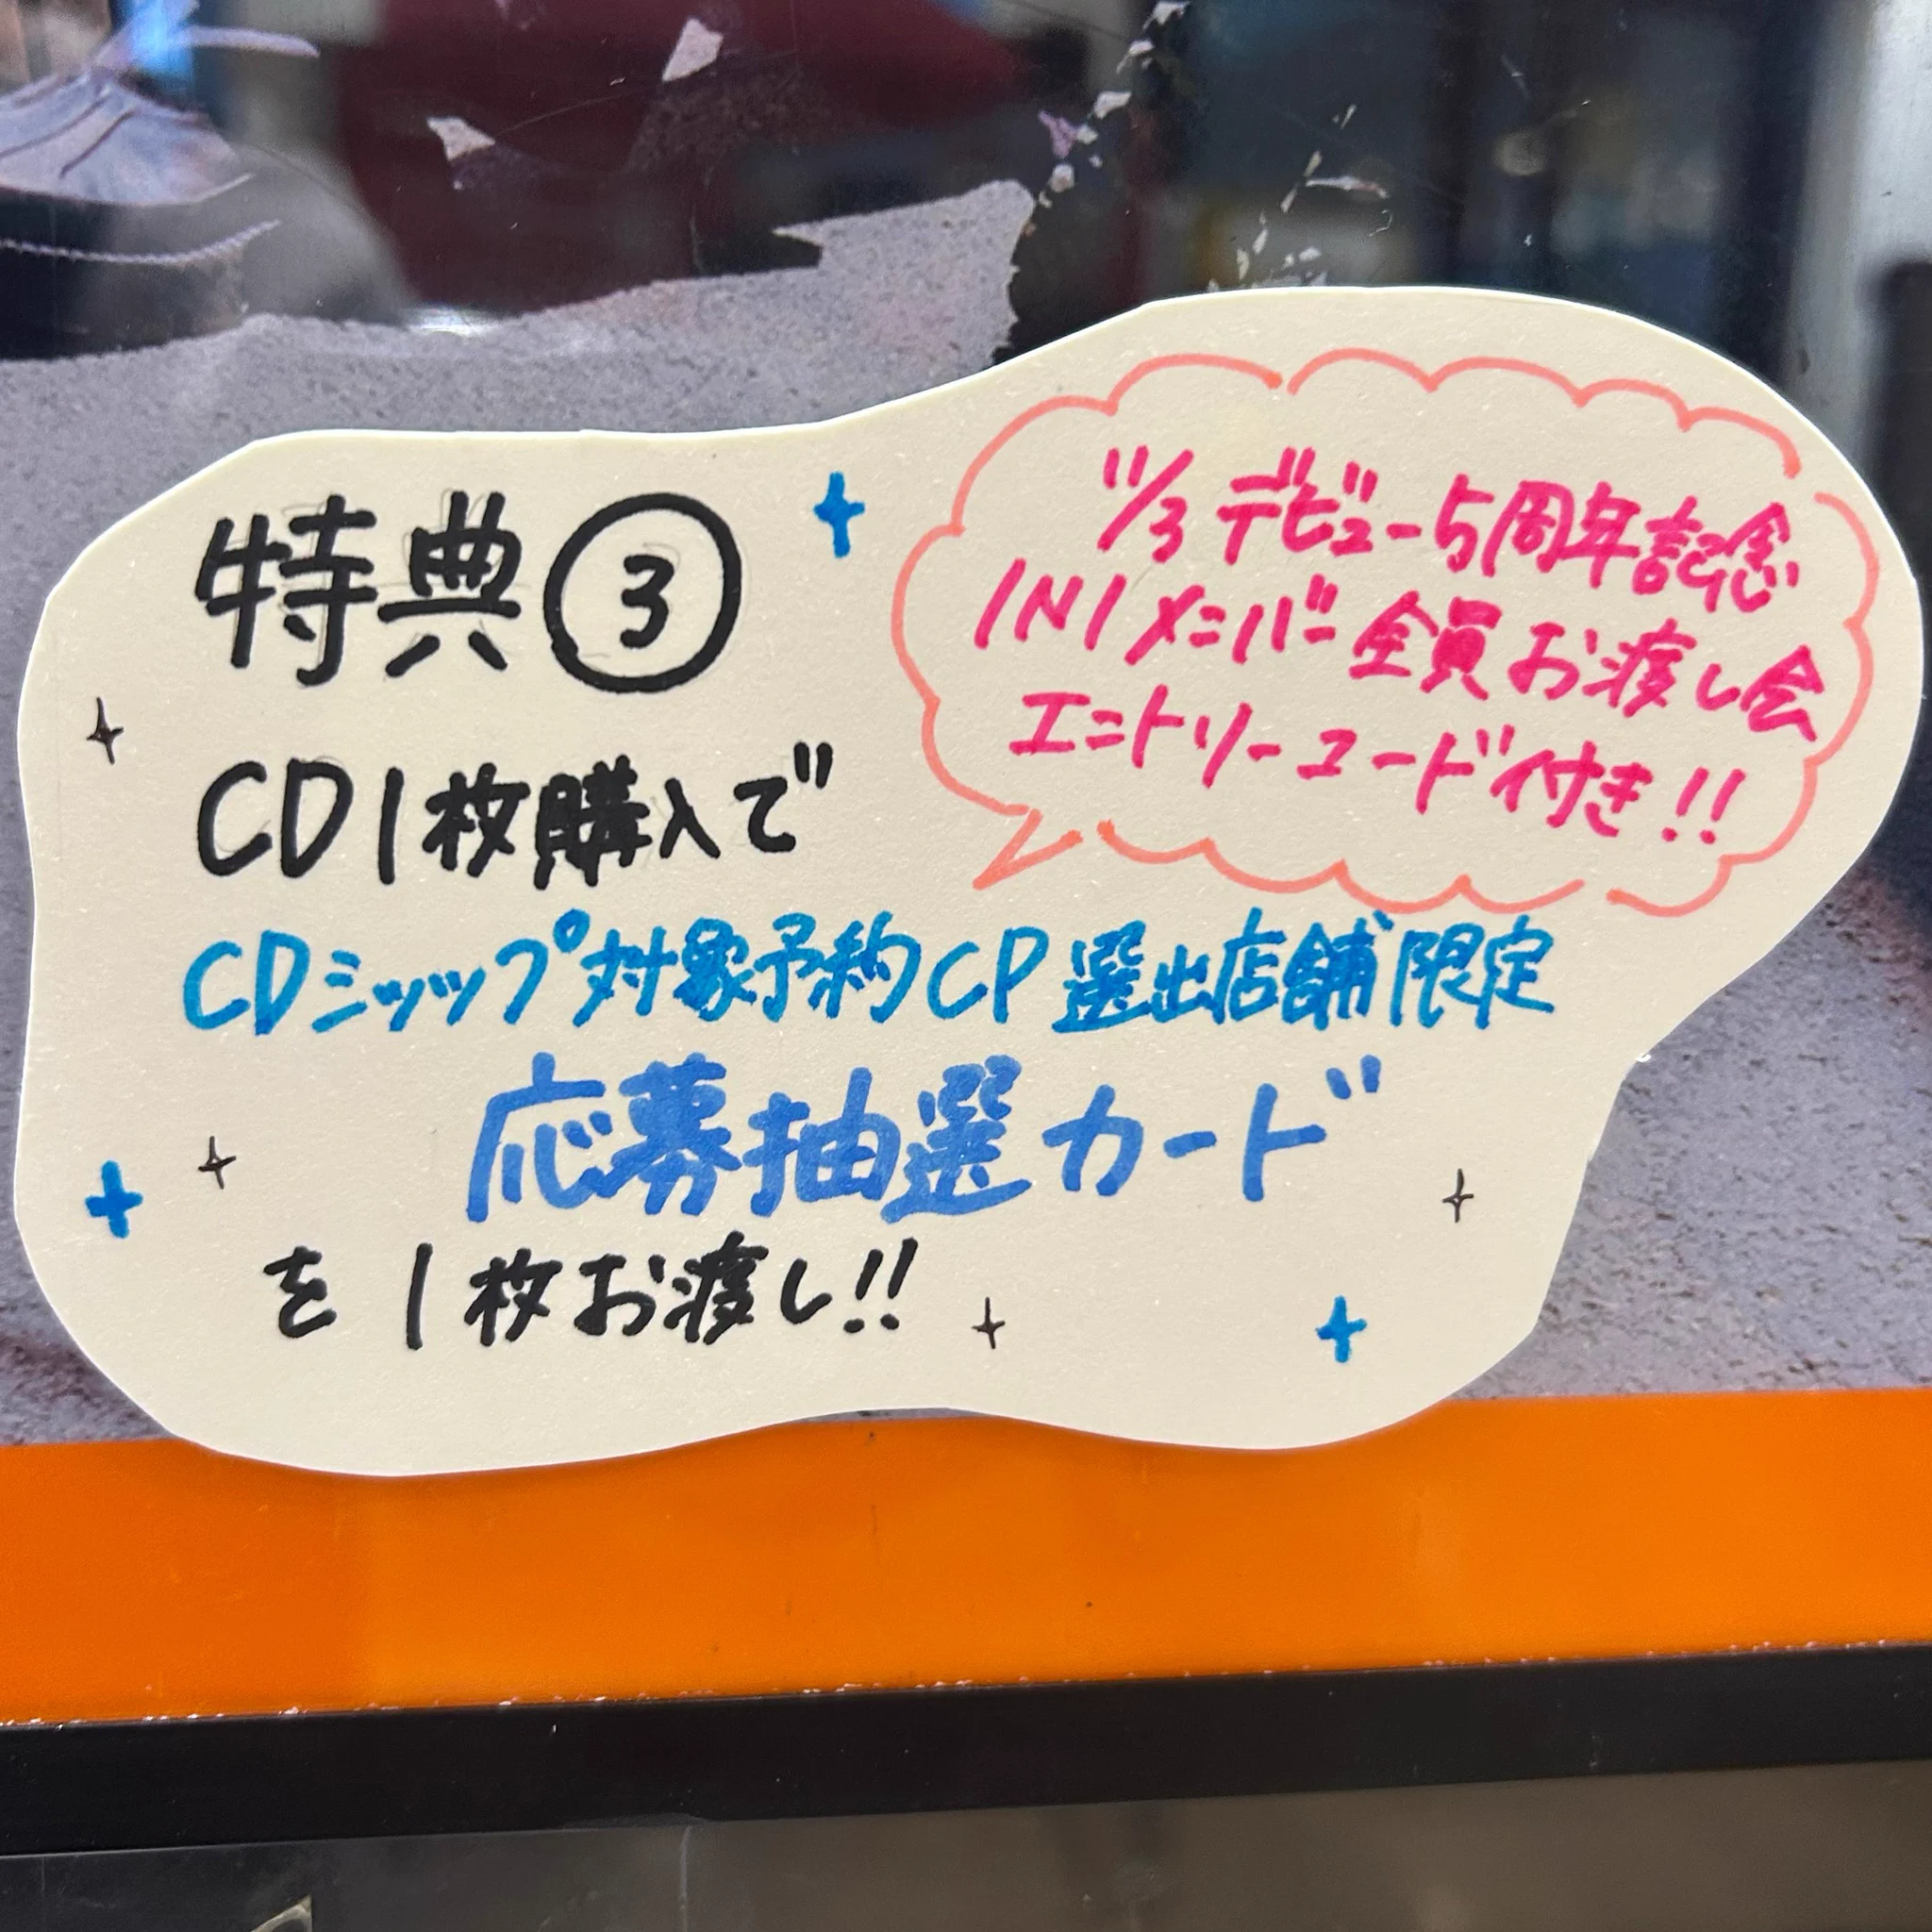 特典③
11/3 デビュー5周年記念
INIメンバー全員お渡し会
エントリーコード付き!!
CD1枚購入で
CDショップ対象予約CP選出店舗限定
応募抽選カード
を1枚お渡し!!